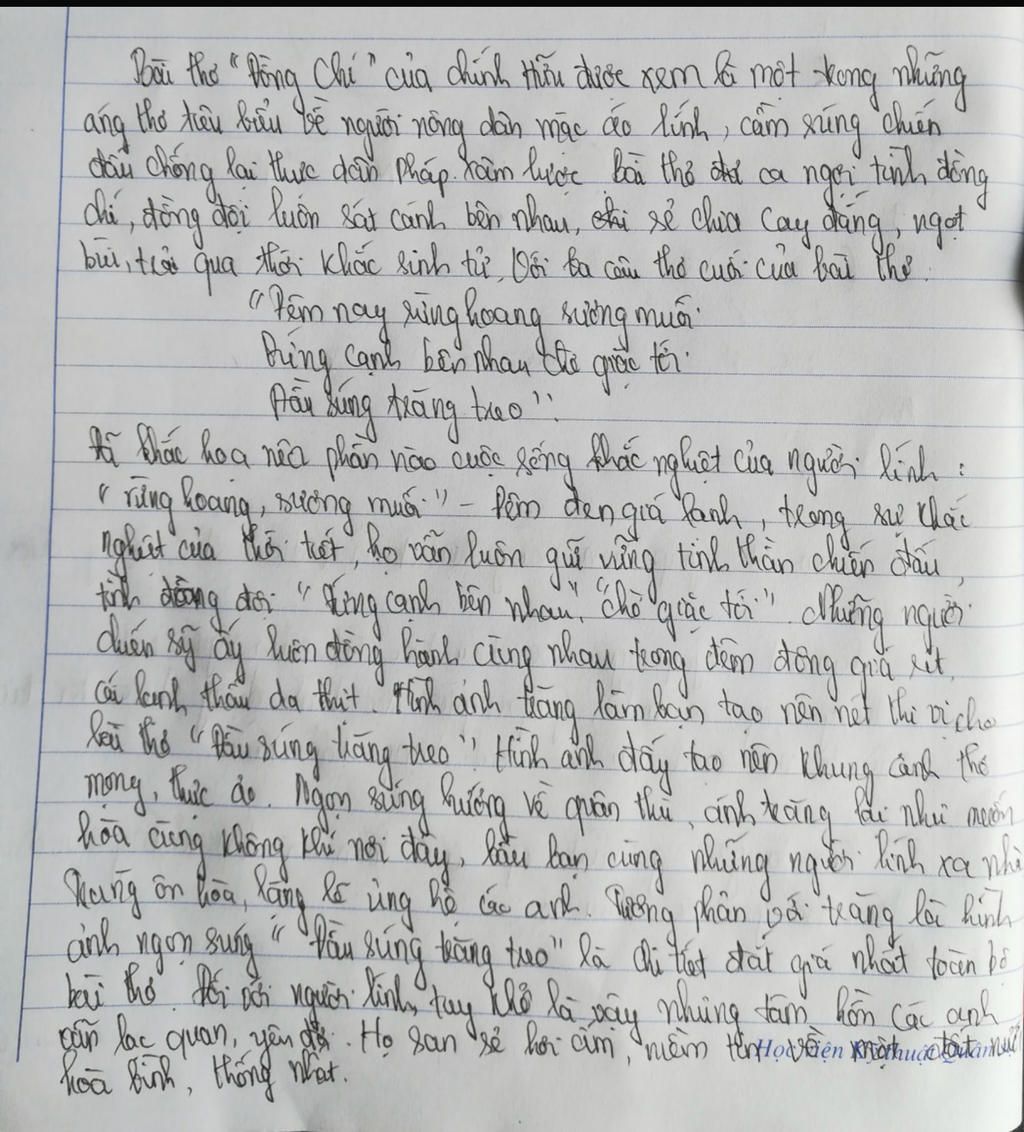 Bài thơ "Đồng Chí" của chính Hữu được xem là một trong những
áng thơ tiêu biểu về người nông dân mặc áo lính, cầm súng chiến
đấu chống lại thực dân Pháp xâm lược bài thơ ca ngợi tình đồng
chí, đồng đội luôn sát cánh bên nhau, sẻ chia cay đắng, ngọt
bùi, trải qua thời khắc sinh tử. Với ba câu thơ cuối của bài thơ.
"Đêm nay rừng hoang sương muối
Đứng cạnh bên nhau chờ giặc tới
Đầu súng trăng treo".
Đã khắc họa nên phần nào cuộc sống khắc nghiệt của người lính :
"rừng hoang, sương muối" - Đêm đen giá lạnh, trong sự khắc
nghiệt của thời tiết, họ vẫn luôn giữ vững tinh thần chiến đấu,
tình đồng đội "Đứng cạnh bên nhau", "chờ giặc tới". Những người
chiến sỹ ấy luôn đồng hành cùng nhau trong đêm đông giá rét,
cái lạnh thấu da thịt. Hình ảnh trăng làm bạn tạo nên nét thi vị cho
bài thơ "Đầu súng trăng treo". Hình ảnh đấy tạo nên khung cảnh thơ
mộng, thực ảo. Ngọn súng hướng về quân thù, ánh trăng lại như muốn
hòa cùng không khí nơi đây, bầu bạn cùng những người lính xa nhà
Trăng ôn hòa, lặng lẽ ủng hộ các anh. Tương phản với trăng là hình
ảnh ngọn súng "Đầu súng trăng treo" là chi tiết đắt giá nhất toàn bộ
bài thơ. Đối với người lính, tuy khổ là vậy nhưng tâm hồn các anh
vẫn lạc quan, yêu đời. Họ san sẻ hơi ấm, niềm tin về một đất nước
hòa bình, thống nhất.